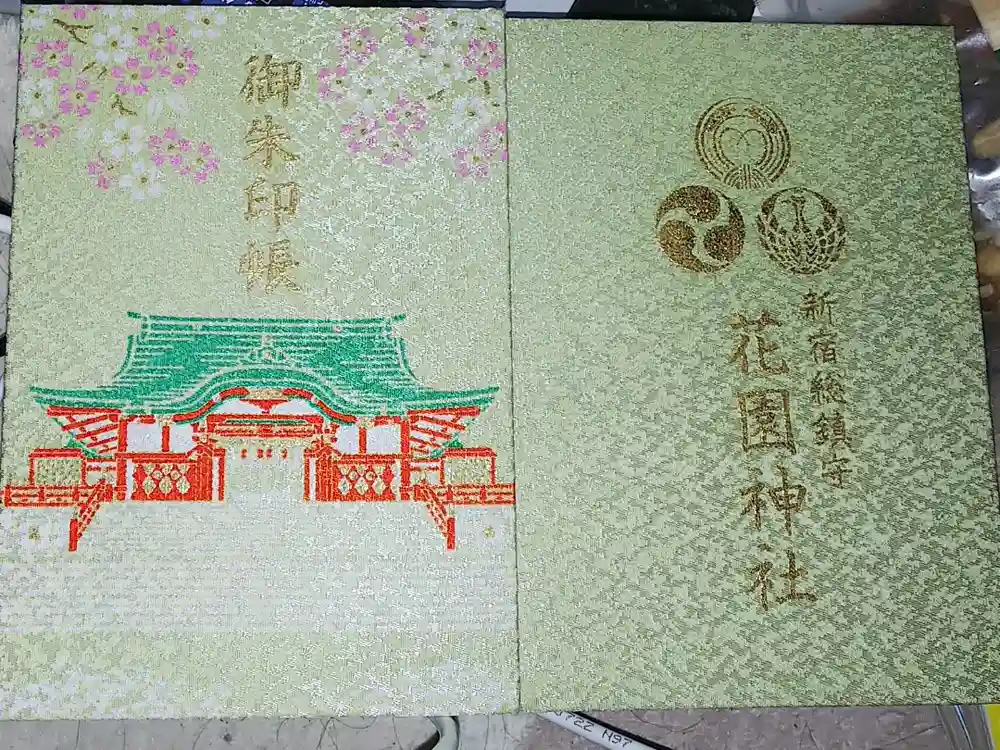 御朱印帳
新宿総鎮守
花園神社